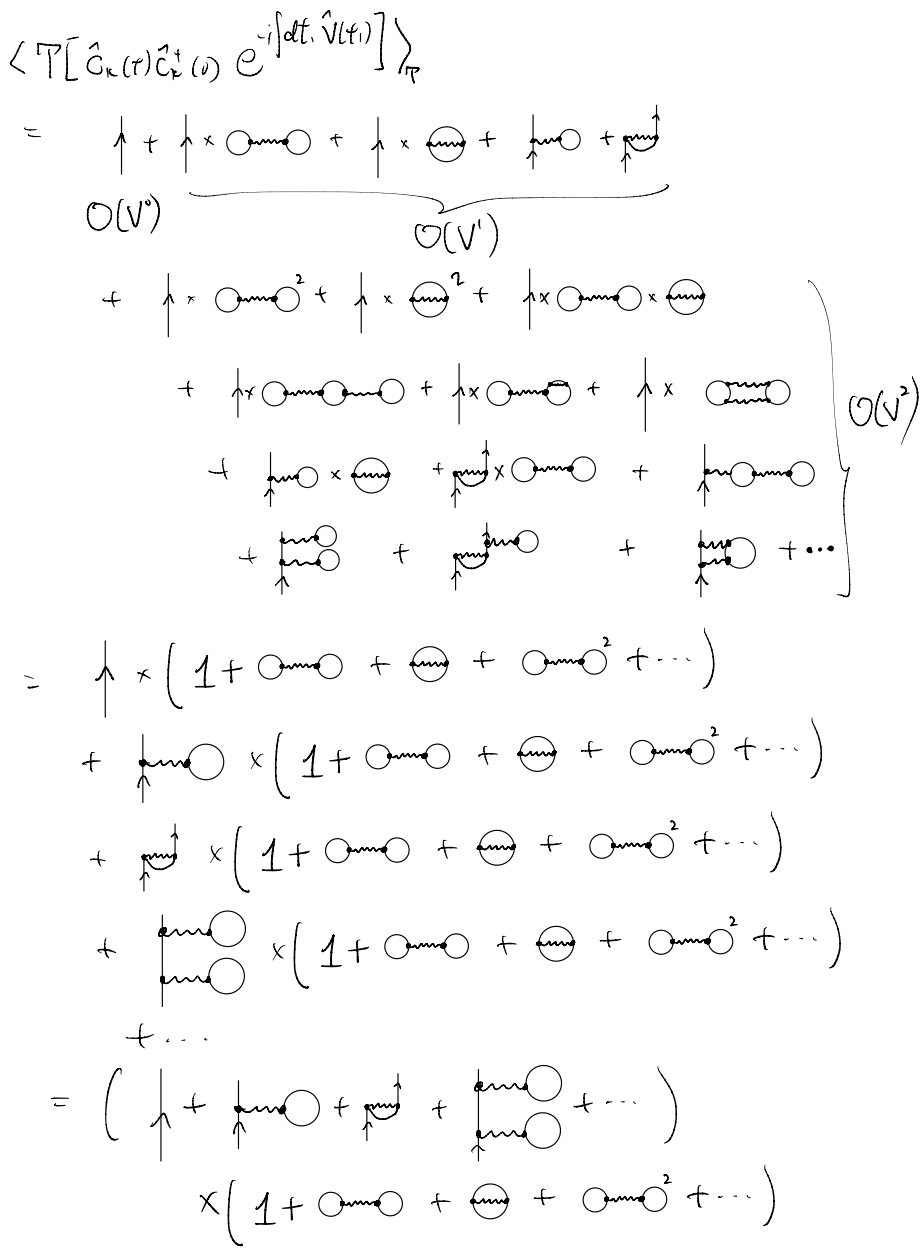 ⟨T[ĉₖ(τ)ĉₖ⁺(0) e^{-i∫dt₁ V̂(t₁)}]⟩
= + × + × + +
O(V⁰) O(V¹)
+ × ² + × ² + × ×
+ × + × + × O(V²)
+ × + × +
+ + + ...
= × ( 1 + + + ² + ... )
+ × ( 1 + + + ² + ... )
+ × ( 1 + + + ² + ... )
+ × ( 1 + + + ² + ... )
+ ...
= ( + + + + ... )
× ( 1 + + + ² + ... )